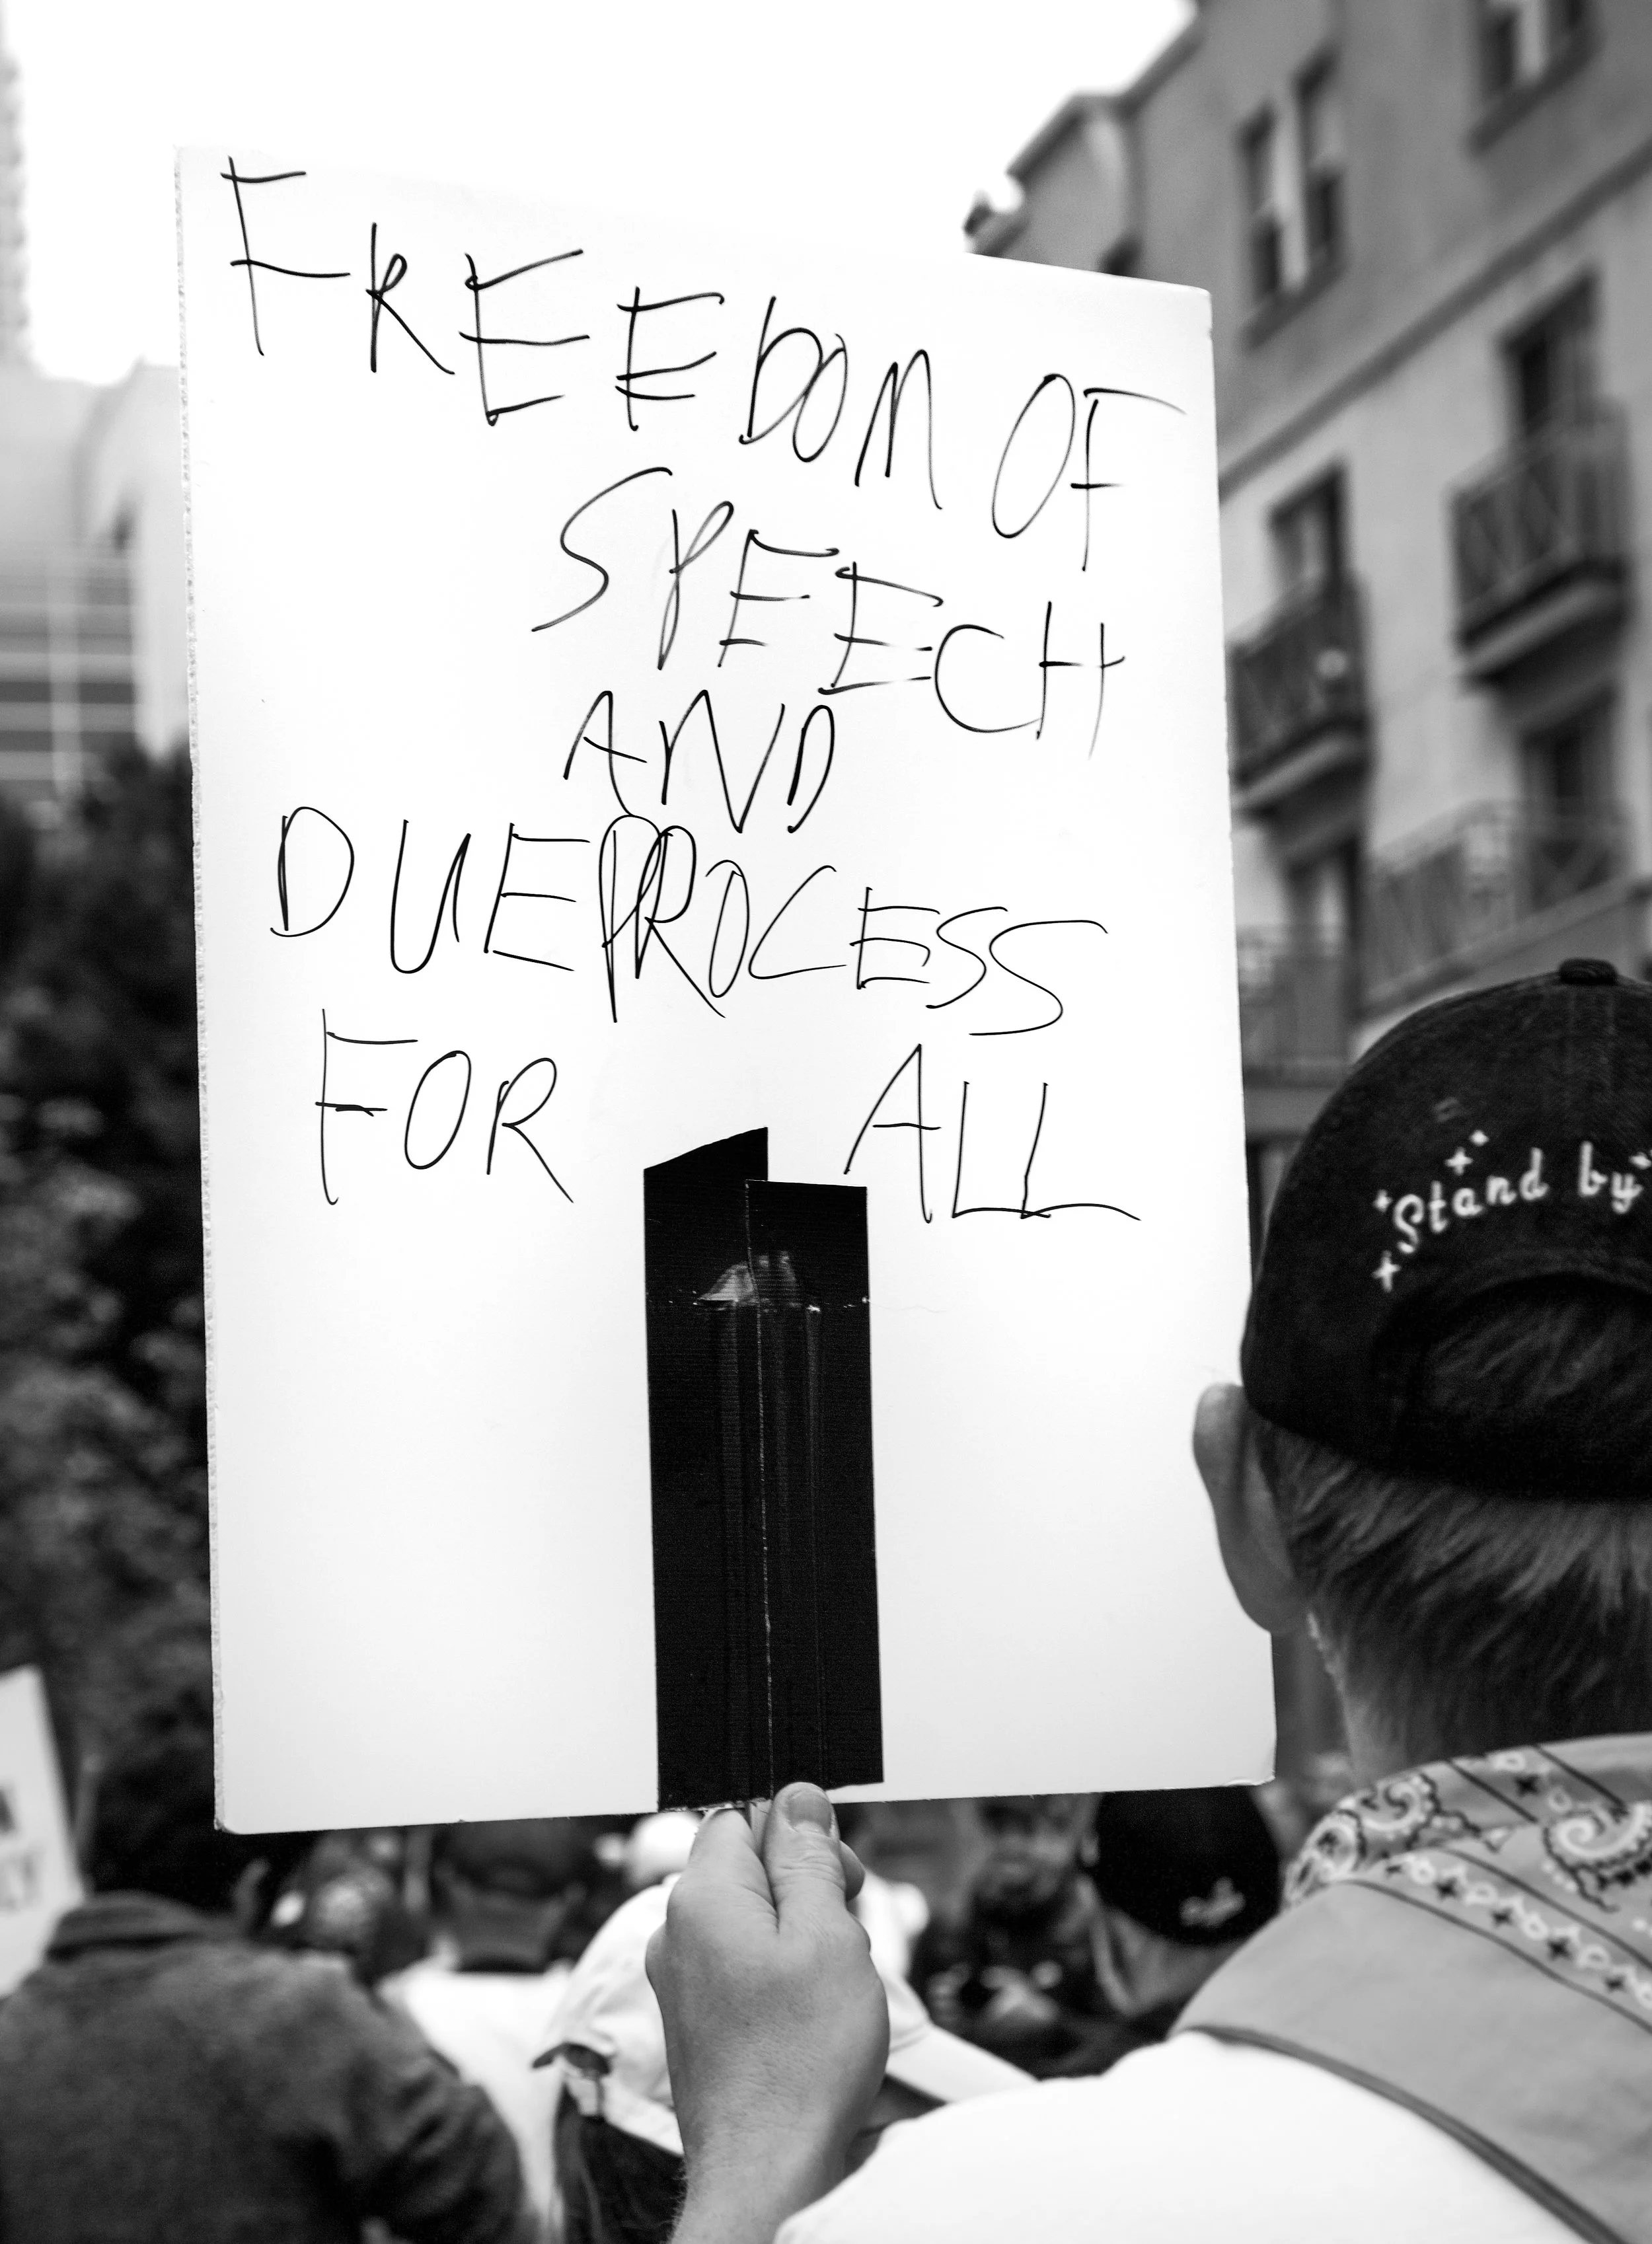 FREEDOM OF
SPEECH
AND
DUE PROCESS
FOR ALL
Stand by